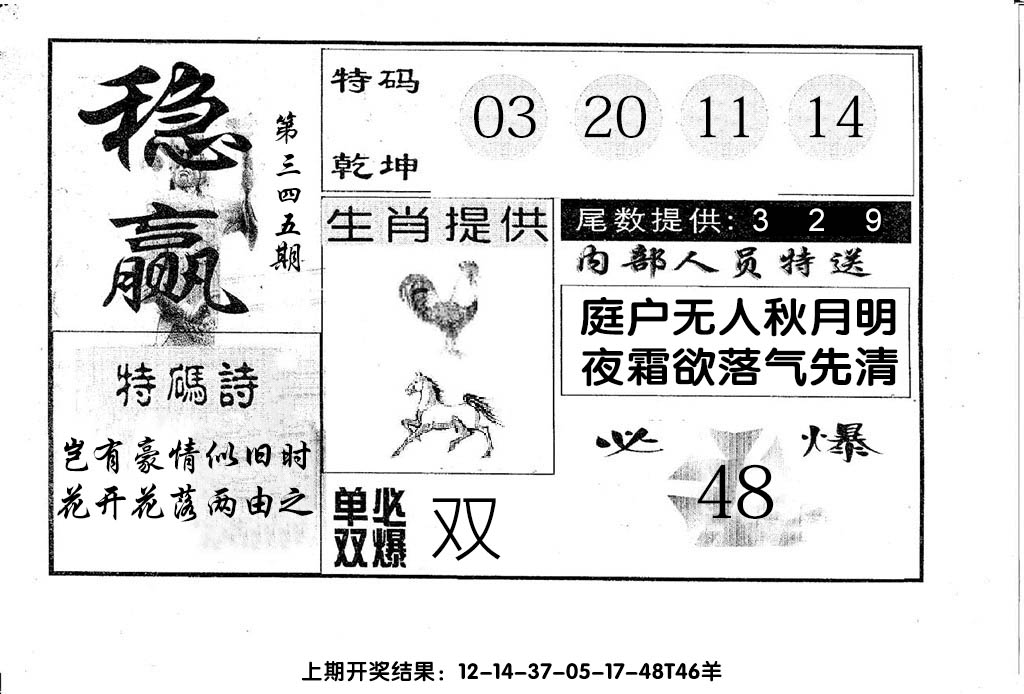 稳赢
第三四五期
特码
乾坤
03 20 11 14
生肖提供
尾数提供: 3 2 9
内部人员特送
庭户无人秋月明
夜霜欲落气先清
特碼詩
岂有豪情似旧时
花开花落两由之
单双
必爆
双
必爆
48
上期开奖结果：12-14-37-05-17-48T46羊